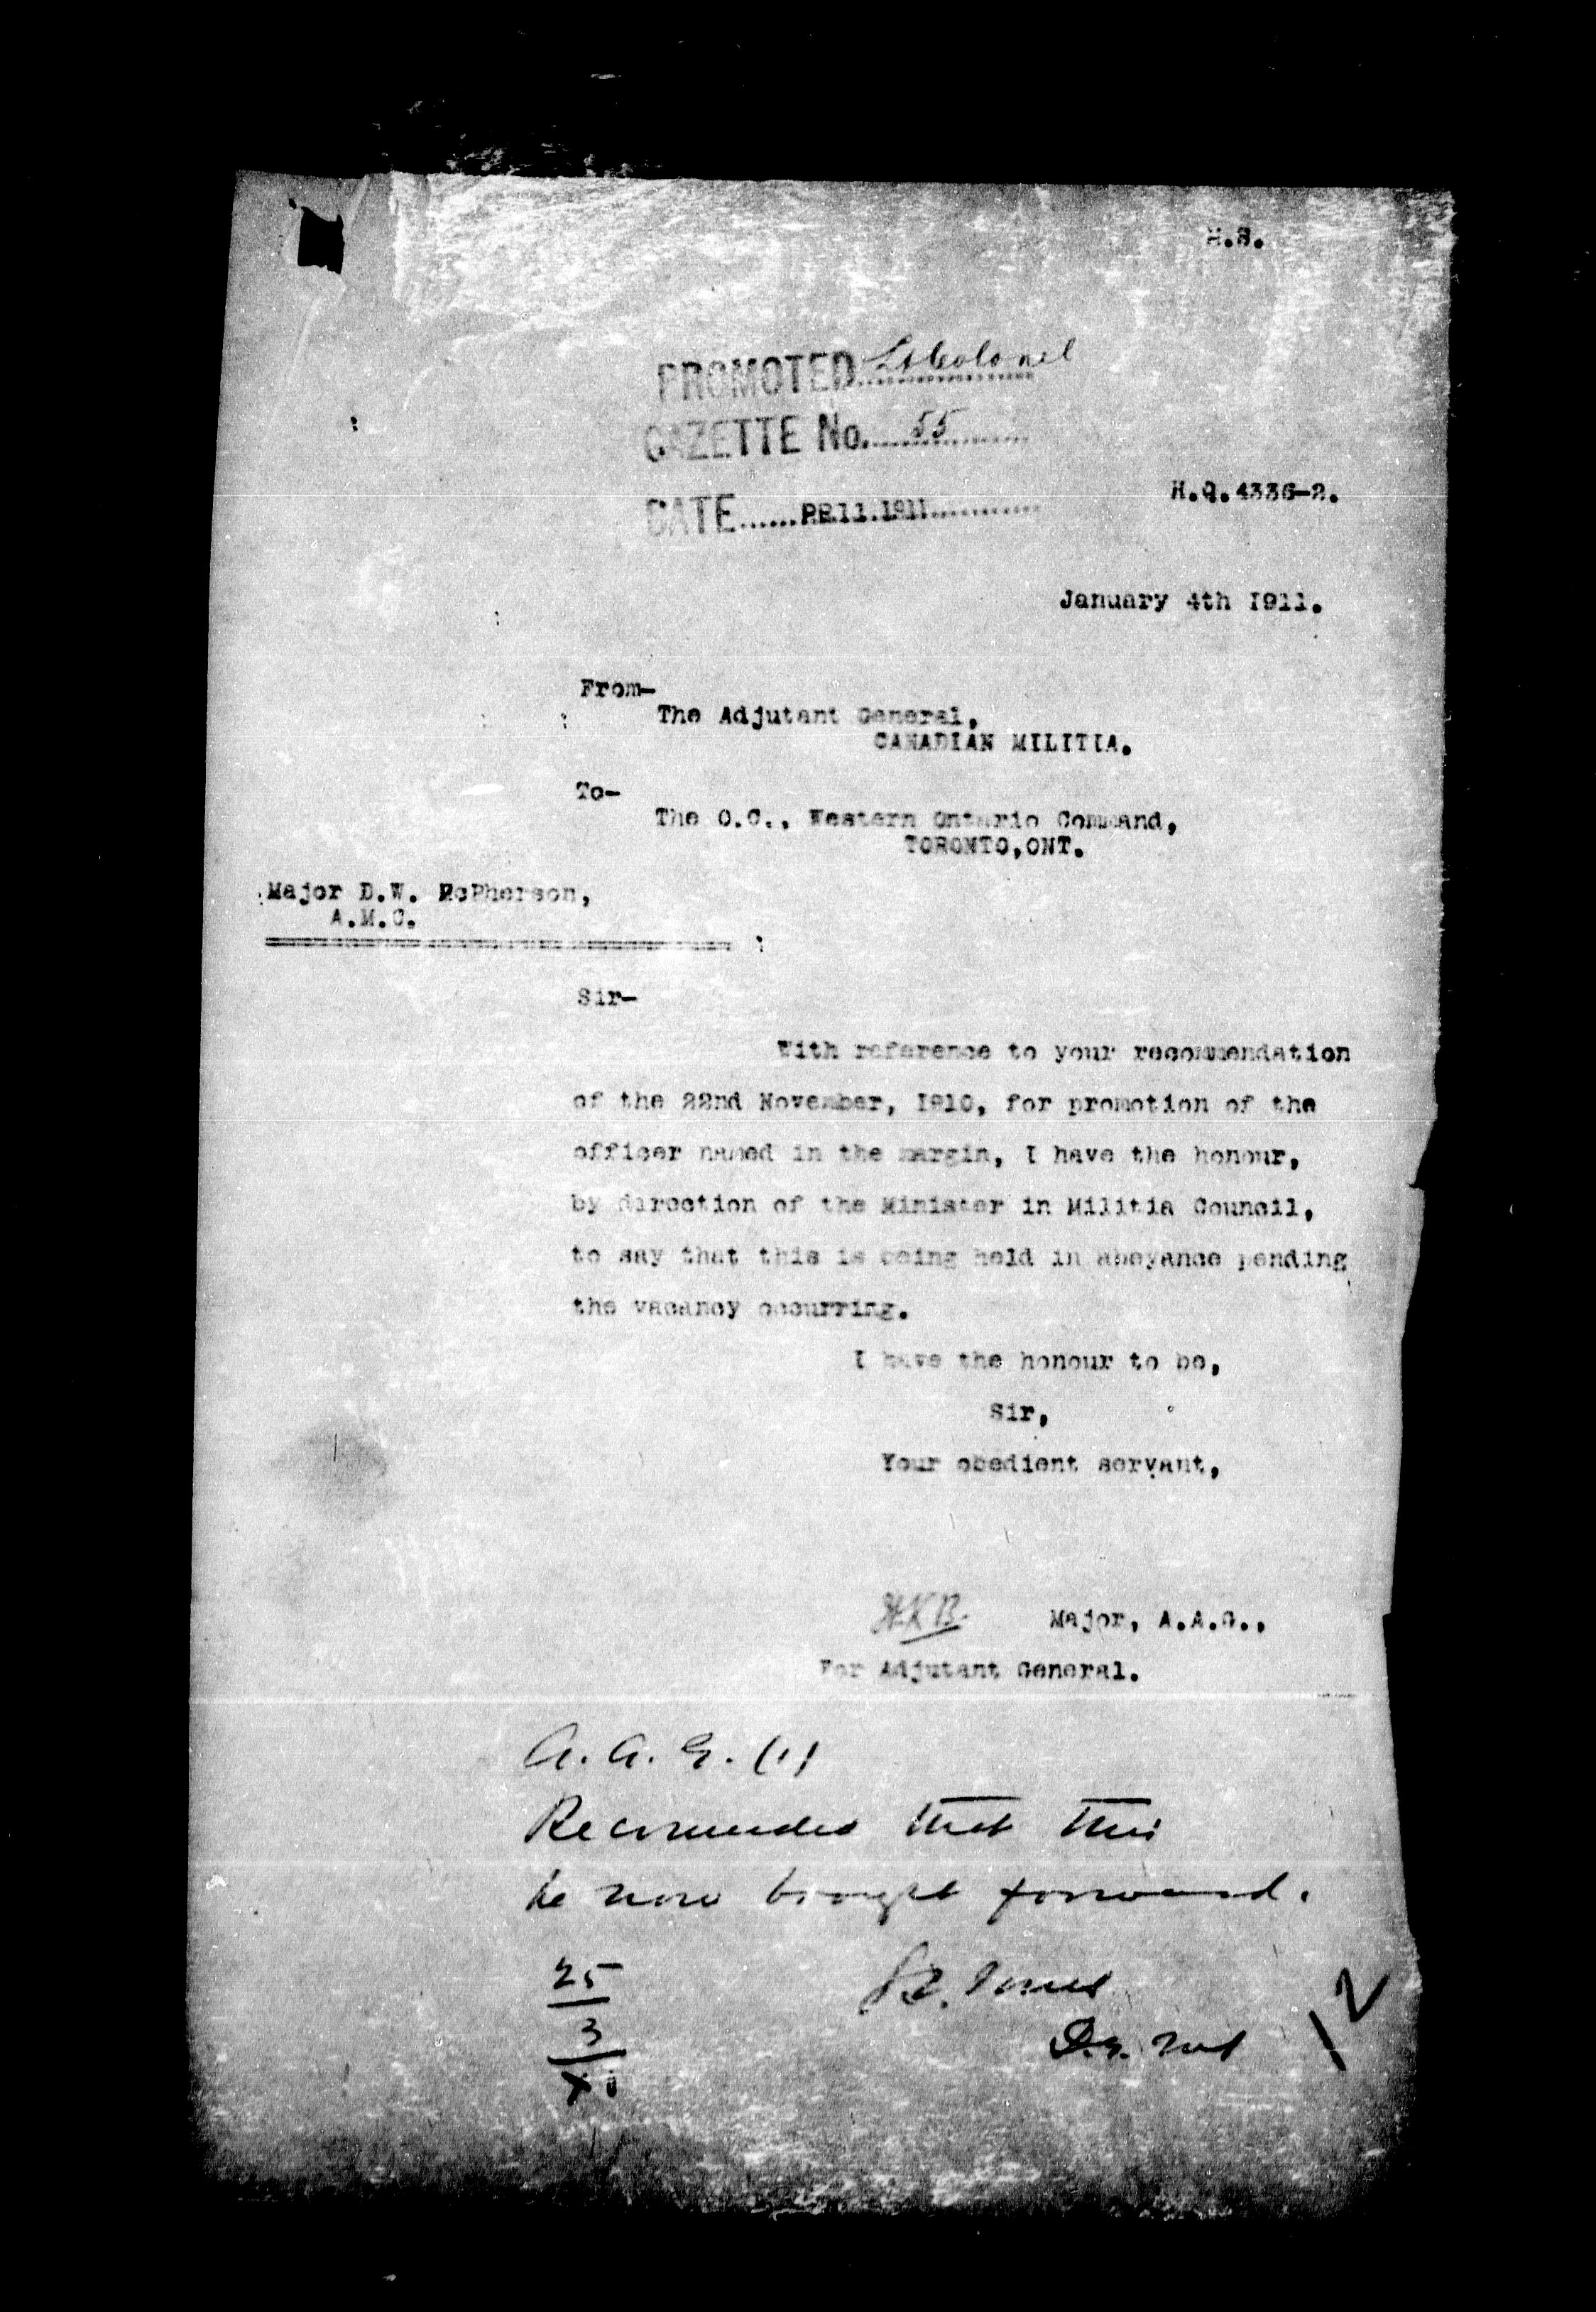 H.S.
PROMOTED Lt Colonel
GAZETTE No. 55
DATE PR 11.1911
H.Q.4336-2.
January 4th 1911.
From-
The Adjutant General,
CANADIAN MILITIA.
To-
The O.C., Western Ontario Command,
TORONTO,ONT.
Major D.W. McPherson,
A.M.C.
Sir-
With reference to your recommendation
of the 22nd November, 1910, for promotion of the
officer named in the margin, I have the honour,
by direction of the Minister in Militia Council,
to say that this is being held in abeyance pending
the vacancy occurring.
I have the honour to be,
Sir,
Your obedient servant,
Major, A.A.G.,
For Adjutant General.
A.A.G. (1)
Recommended that this
be now brought forward.
25
3
XI
Jones
D.G.
12